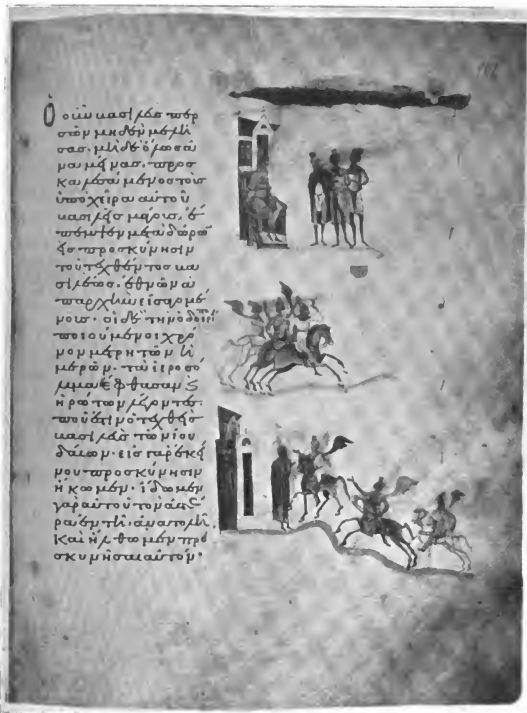 Ὁ οὖν βασιλεὺς περ
σῶν μηδὲν μελλή
σας. μηδὲ ὅλως ἀ
ναμείνας. προσ
καλεσάμενος τοὺς
ὑπὸ χεῖρα αὐτοῦ
βασιλεῖς μάγους. ἔ
πεμψεν μετὰ δώρων
εἰς προσκύνησιν
τοῦ τεχθέντος βα
σιλέως. ἐθνῶν ἀ
παρχὴν εἰσφερομέ
νους. οἱ δὲ τὴν
ποιούμενοι χρό
νον μέρη τῶν ἡ
μερῶν. τὰ ἱεροσό
λυμα ἔφθασαν ϗ
ἠρώτων λέγοντες·
ποῦ ἐστὶν ὁ τεχθεὶς
βασιλεὺς τῶν ἰου
δαίων. εἰς γὰρ ἐκεί
νου προσκύνησιν
ἥκωμεν. ἴδωμεν
γὰρ αὐτοῦ τὸν ἀστέ
ρα ἐν τῇ ἀνατολῇ.
Καὶ ἤλθωμεν προ
σκυνῆσαι αὐτόν.